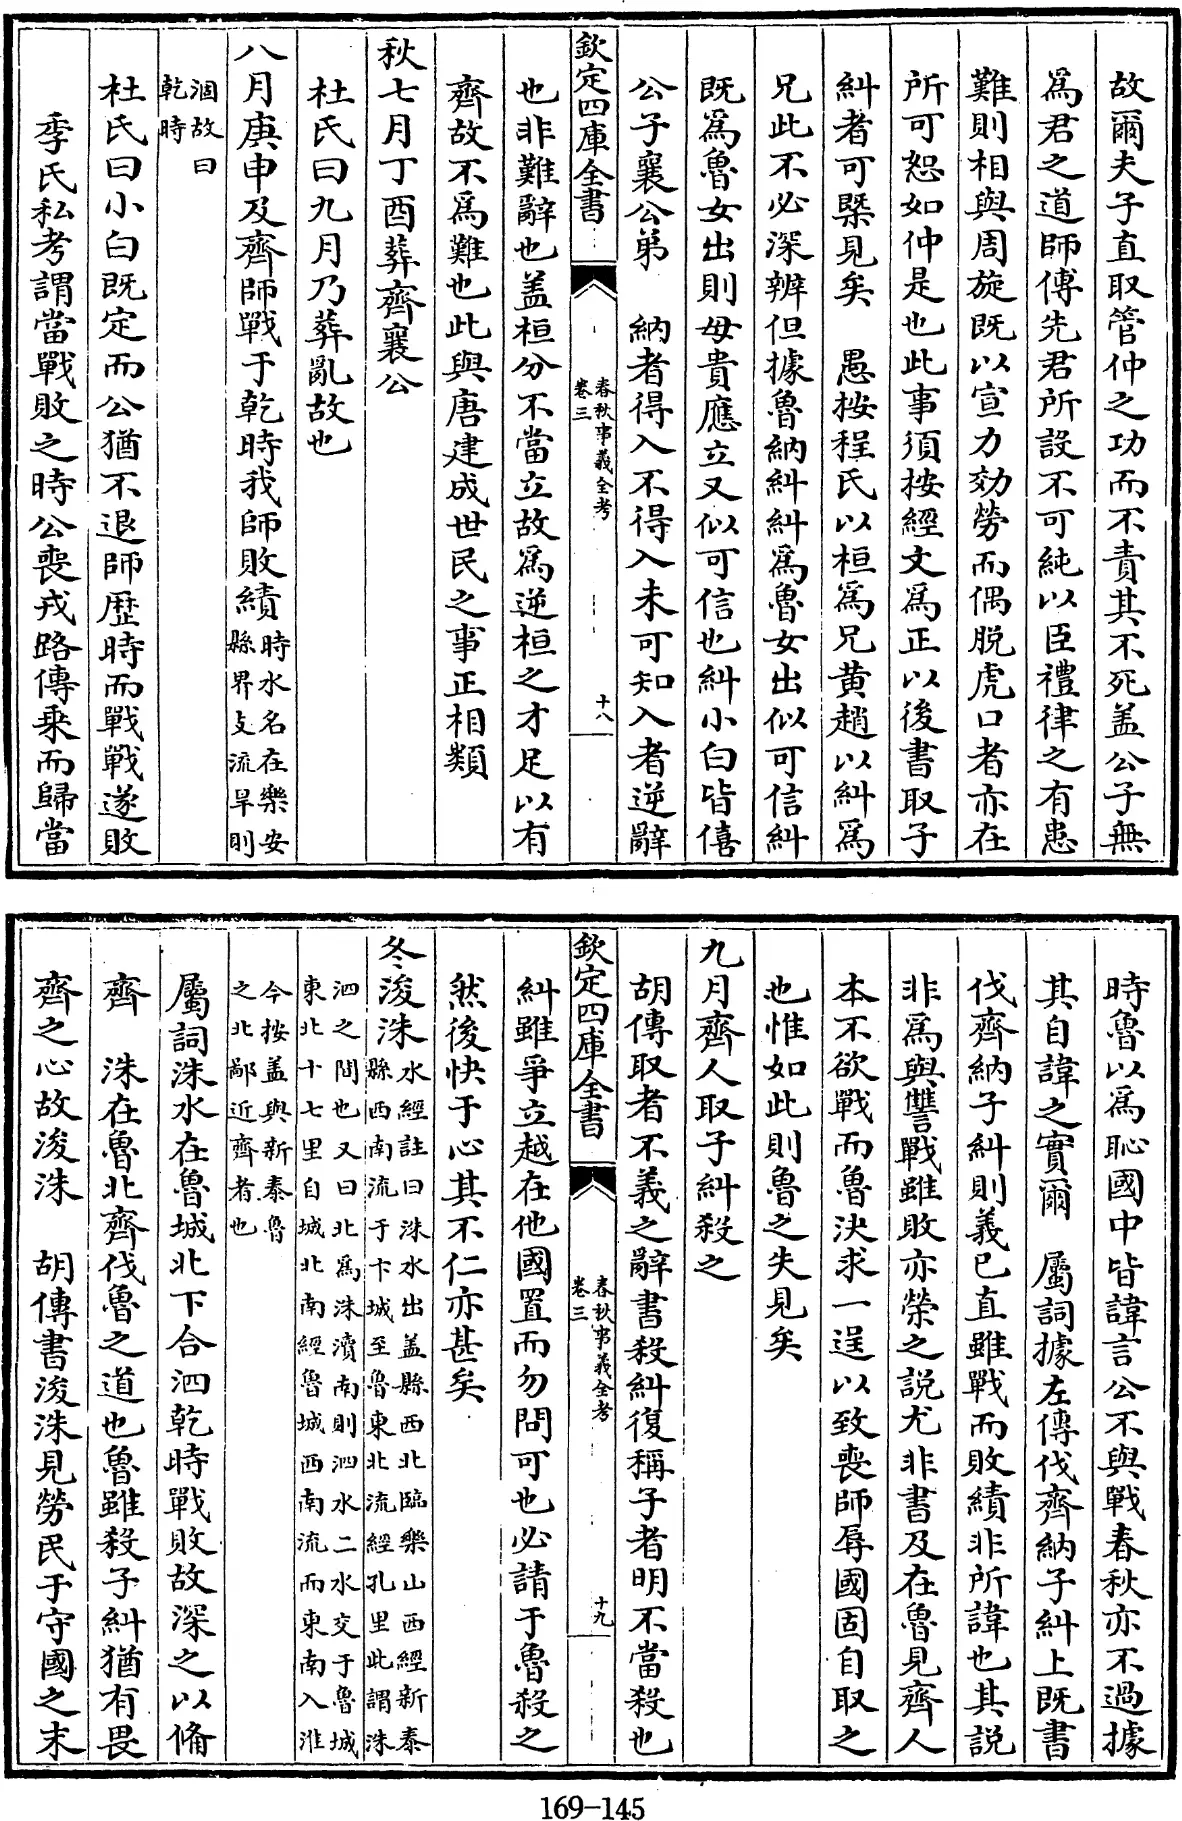 故爾夫子直取管仲之功而不責其不死盖公子無
爲君之道師傅先君所設不可純以臣禮律之有患
難則相與周旋既以宣力効勞而偶脱虎口者亦在
所可恕如仲是也此事須按經文爲正以後書取子
糾者可槩見矣　愚按程氏以桓爲兄黄趙以糾爲
兄此不必深辨但據魯納糾糾爲魯女出似可信糾
既爲魯女出則母貴應立又似可信也糾小白皆僖
公子襄公弟　納者得入不得入未可知入者逆辭
欽定四庫全書
春秋事義全考
卷三
十八
也非難辭也盖桓分不當立故爲逆桓之才足以有
齊故不爲難也此與唐建成世民之事正相類
秋七月丁酉葬齊襄公
杜氏曰九月乃葬亂故也
八月庚申及齊師戰于乾時我師敗績時水名在樂安
縣界攴流旱則
涸故曰
乾時
杜氏曰小白既定而公猶不退師歴時而戰戰遂敗
季氏私考謂當戰敗之時公喪戎路傳乘而歸當
時魯以爲恥國中皆諱言公不與戰春秋亦不過據
其自諱之實爾　屬詞據左傳伐齊納子糾上既書
伐齊納子糾則義已直雖戰而敗績非所諱也其説
非爲與讐戰雖敗亦榮之説尤非書及在魯見齊人
本不欲戰而魯決求一逞以致喪師辱國固自取之
也惟如此則魯之失見矣
九月齊人取子糾殺之
胡傳取者不義之辭書殺糾復稱子者明不當殺也
欽定四庫全書
春秋事義全考
卷三
十九
糾雖爭立越在他國置而勿問可也必請于魯殺之
然後快于心其不仁亦甚矣
冬浚洙水經註曰洙水出盖縣西北臨樂山西經新泰
縣西南流于卞城至魯東北流經孔里此謂洙
泗之間也又曰北爲洙瀆南則泗水二水交于魯城
東北十七里自城北南經魯城西南流而東南入淮
今按盖與新泰魯
之北鄙近齊者也
屬詞洙水在魯城北下合泗乾時戰敗故深之以備
齊　洙在魯北齊伐魯之道也魯雖殺子糾猶有畏
齊之心故浚洙　胡傳書浚洙見勞民于守國之末
169-145